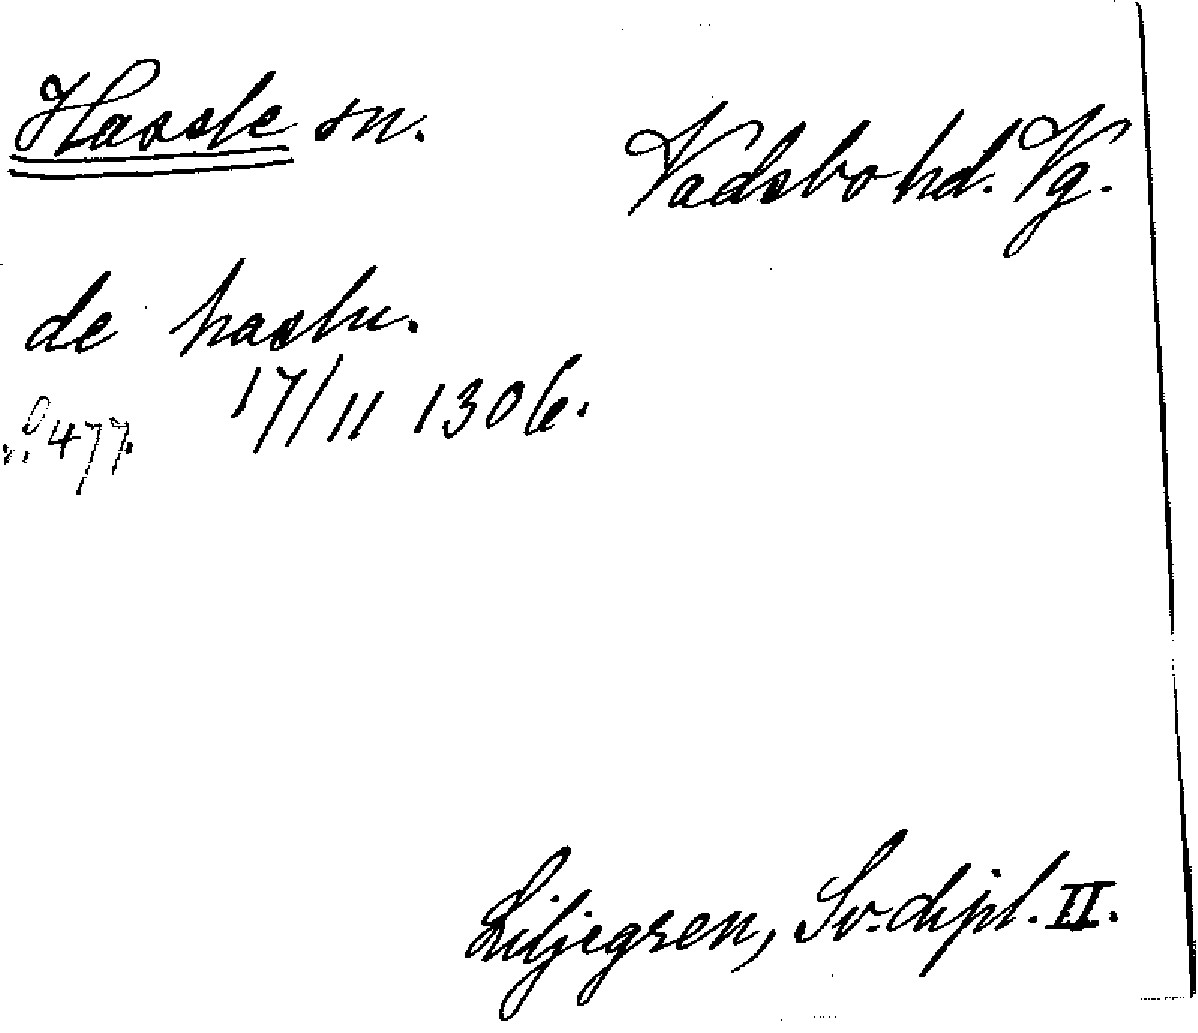 Hassle sn.
Vadsbo hd. Vg.
de haslu.
17/11 1306.
477.
Liljegren, Sv. dipl. II.